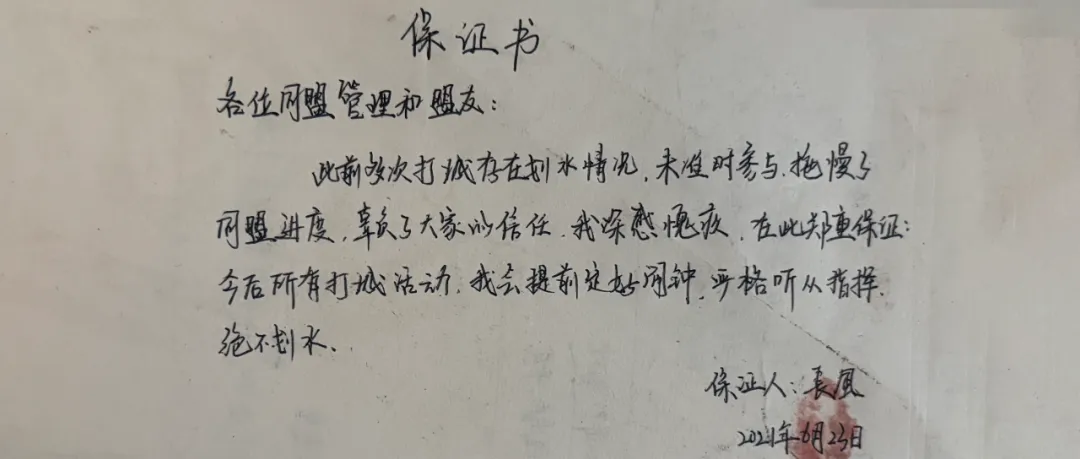 保证书
各位同盟管理和盟友：
此前多次打城存在划水情况，未准时参与，拖慢了
同盟进度，辜负了大家的信任，我深感愧疚，在此郑重保证：
今后所有打城活动，我会提前定好闹钟，严格听从指挥，
绝不划水。
保证人：長風
2021年6月23日